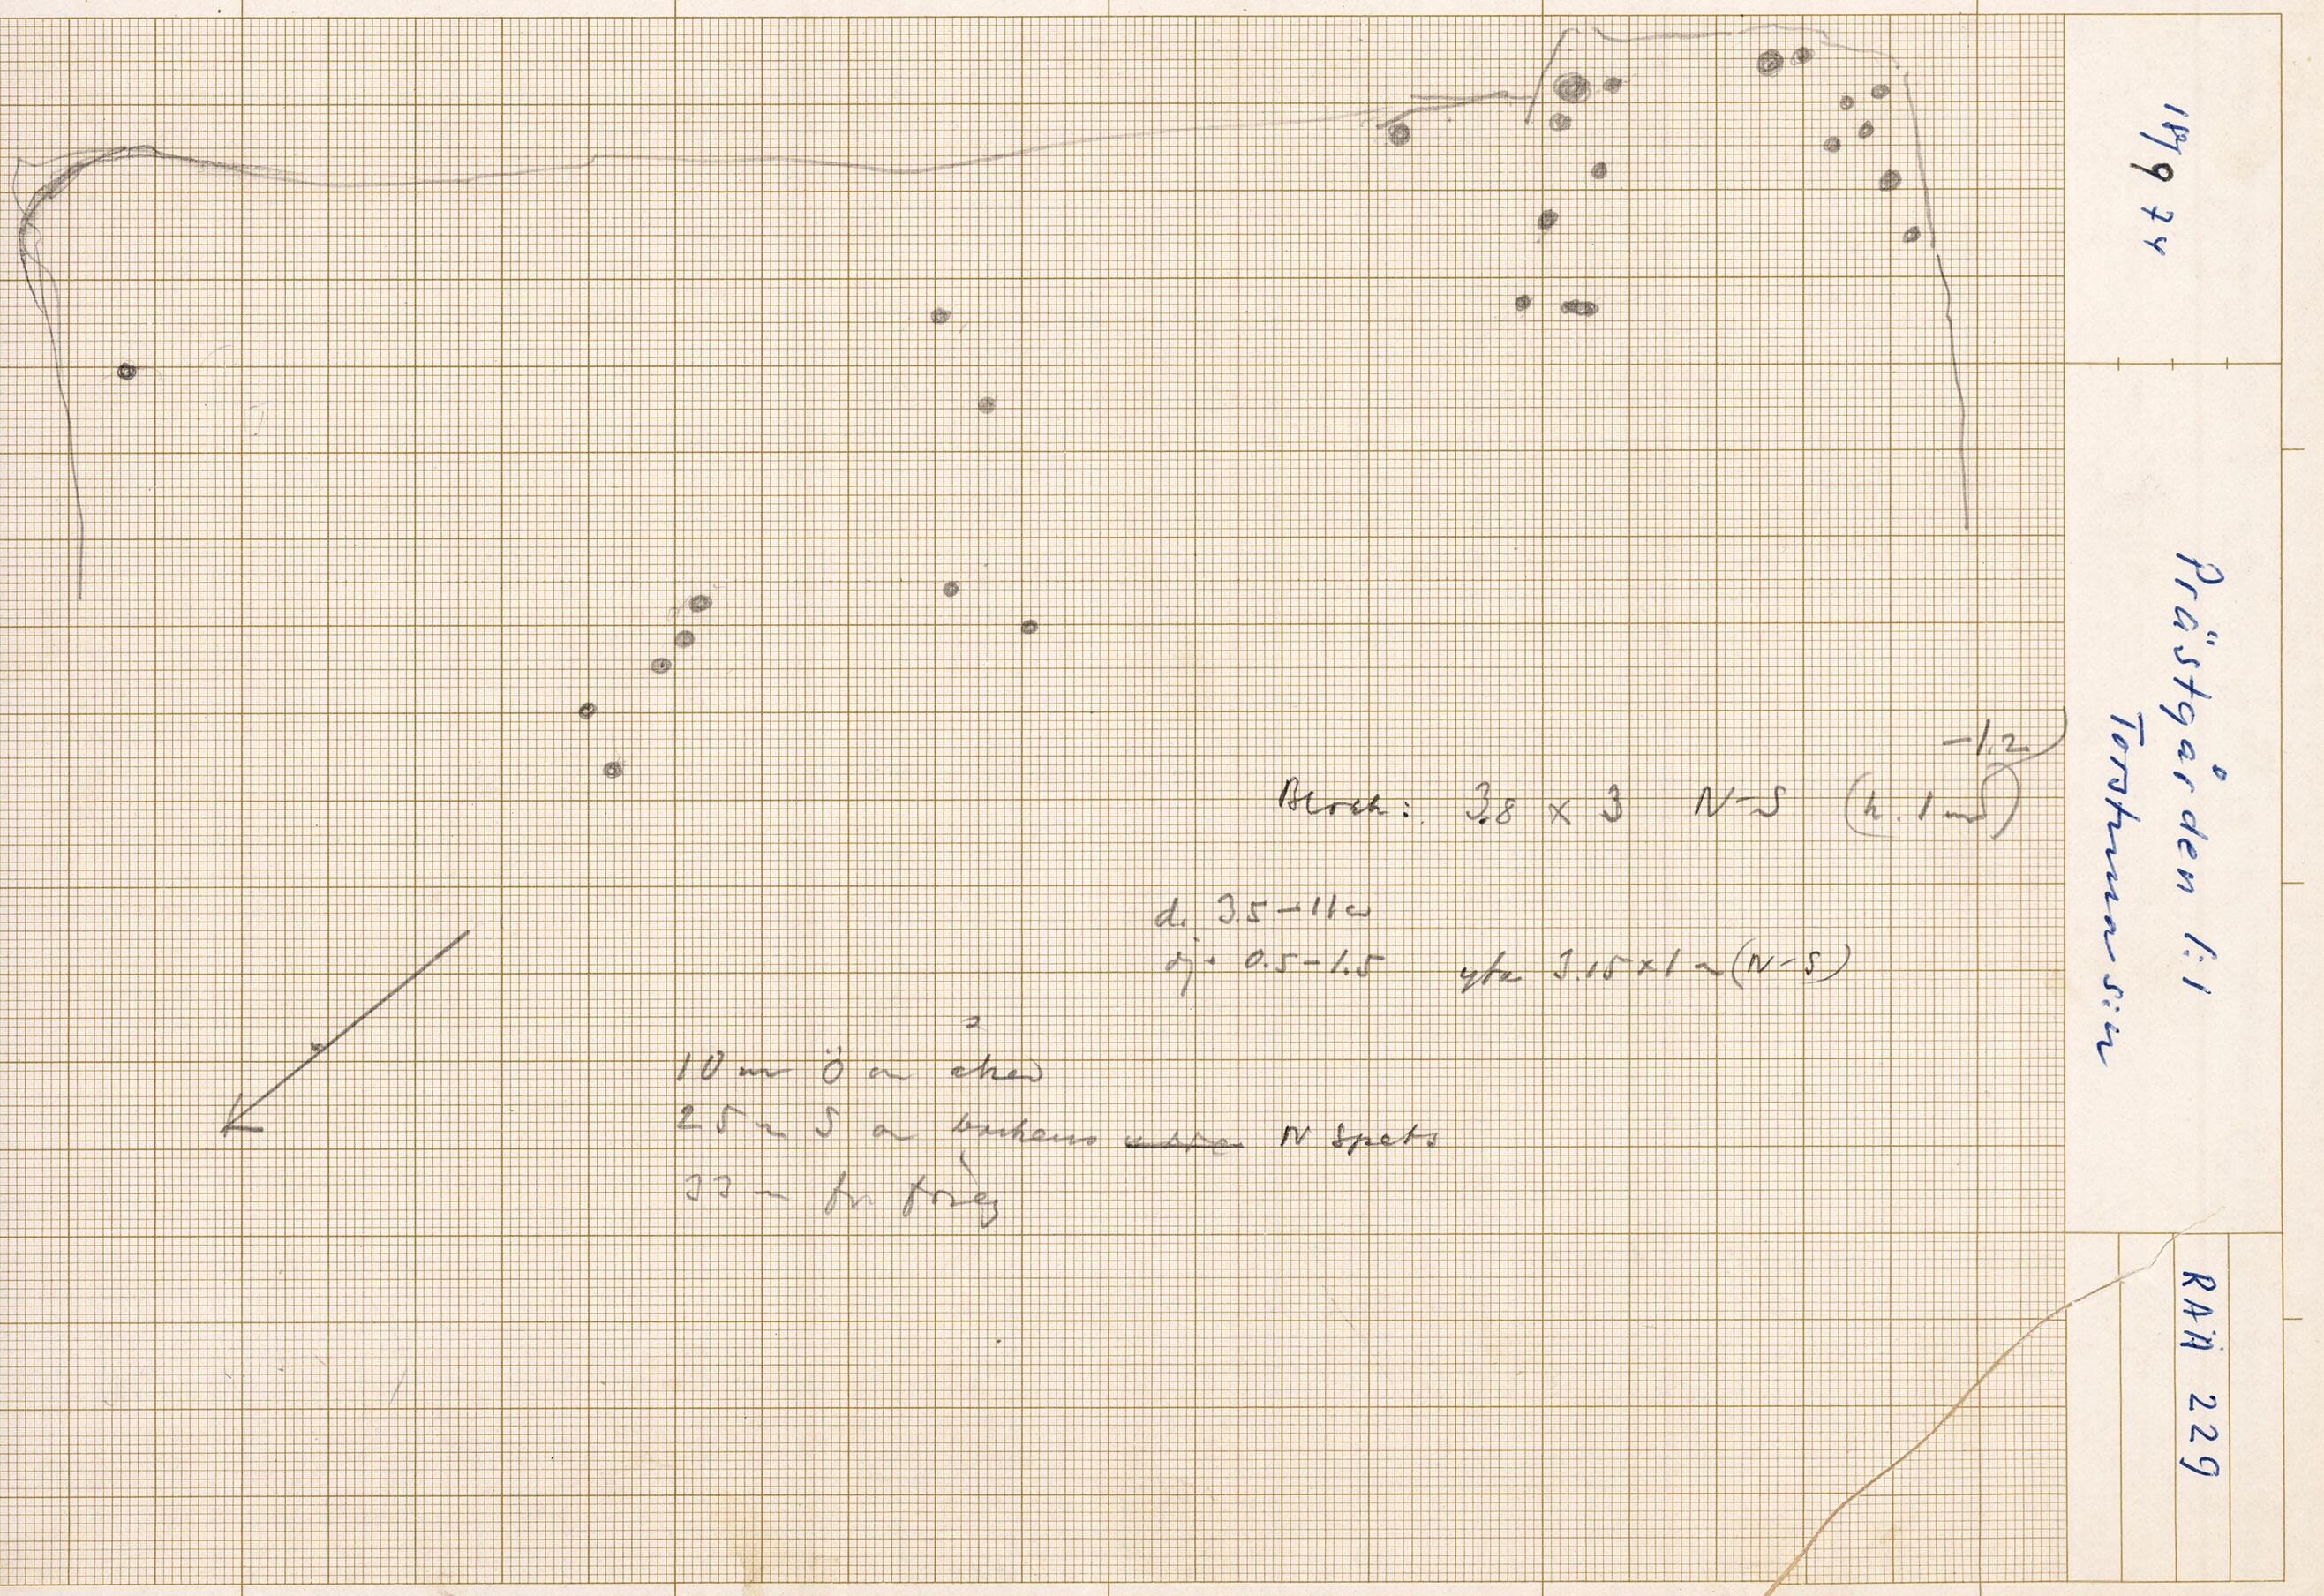 18/9 74
Prästgården 1:1
Torstuna sn
RAÄ 229
-1.2)
Block: 3.8 x 3 N-S (h. 1 m S)
d. 3.5-11 cm
dj. 0.5-1.5 yta 3.15 x 1 m (N-S)
10 m Ö om åker
25 m S om backens N spets
33 m